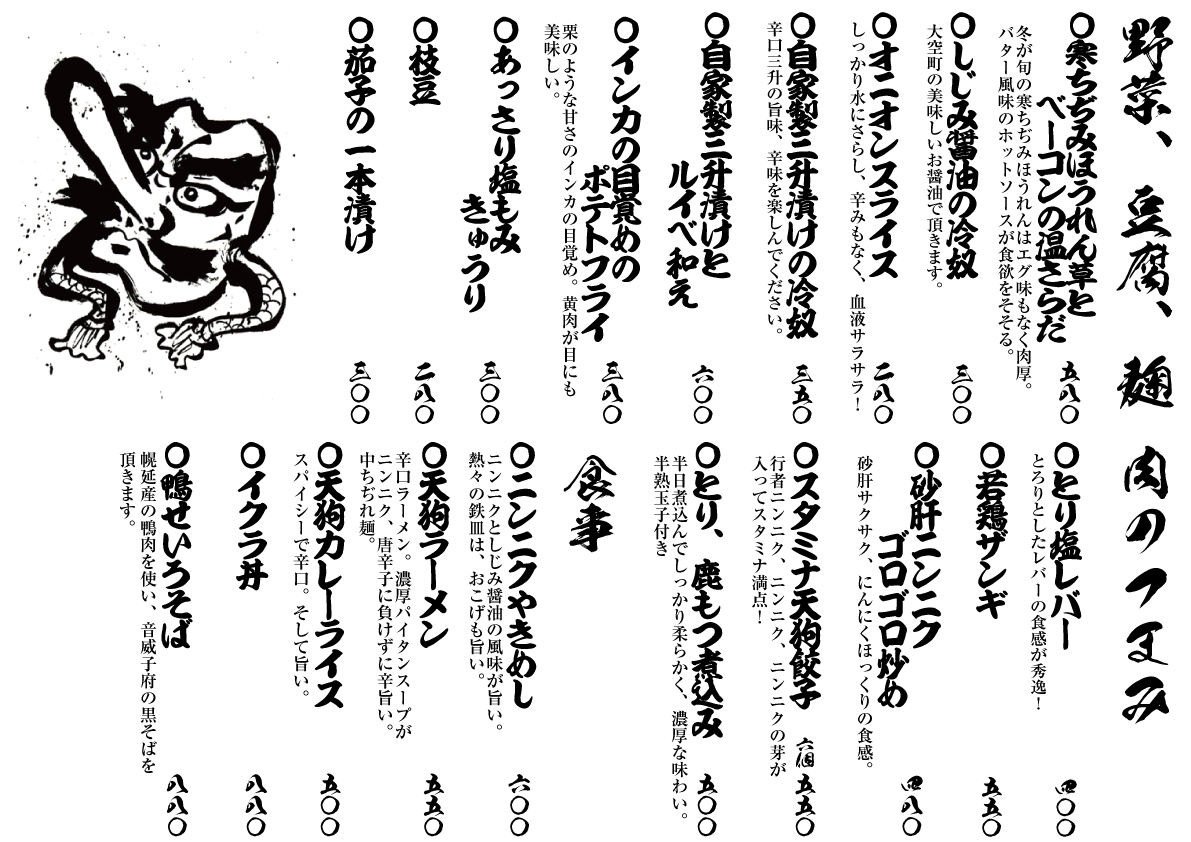 野菜、豆腐、麹
〇寒ちぢみほうれん草と
ベーコンの温さらだ
五八〇
冬が旬の寒ちぢみほうれんはエグ味もなく肉厚。
バター風味のホットソースが食欲をそそる。
〇しじみ醤油の冷奴
三〇〇
大空町の美味しいお醤油で頂きます。
〇オニオンスライス
二八〇
しっかり水にさらし、辛みもなく、血液サラサラ！
〇自家製三升漬けの冷奴
三五〇
辛口三升の旨味、辛味を楽しんでください。
〇自家製三升漬けと
ルイベ和え
六〇〇
〇インカの目覚めの
ポテトフライ
三八〇
栗のような甘さのインカの目覚め。黄肉が目にも
美味しい。
〇あっさり塩もみ
きゅうり
三〇〇
〇枝豆
二八〇
〇茄子の一本漬け
三〇〇
肉のつまみ
〇とり塩レバー
四〇〇
とろりとしたレバーの食感が秀逸！
〇若鶏ザンギ
五五〇
〇砂肝ニンニク
ゴロゴロ炒め
四八〇
砂肝サクサク、にんにくほっくりの食感。
〇スタミナ天狗餃子 六個
五五〇
行者ニンニク、ニンニク、ニンニクの芽が
入ってスタミナ満点！
〇とり、鹿もつ煮込み
五〇〇
半日煮込んでしっかり柔らかく、濃厚な味わい。
半熟玉子付き
食事
〇ニンニクやきめし
六〇〇
ニンニクとしじみ醤油の風味が旨い。
熱々の鉄皿は、おこげも旨い。
〇天狗ラーメン
五五〇
辛口ラーメン。濃厚パイタンスープが
ニンニク、唐辛子に負けずに辛旨い。
中ちぢれ麺。
〇天狗カレーライス
五〇〇
スパイシーで辛口。そして旨い。
〇イクラ丼
八八〇
〇鴨せいろそば
八八〇
幌延産の鴨肉を使い、音威子府の黒そばを
頂きます。